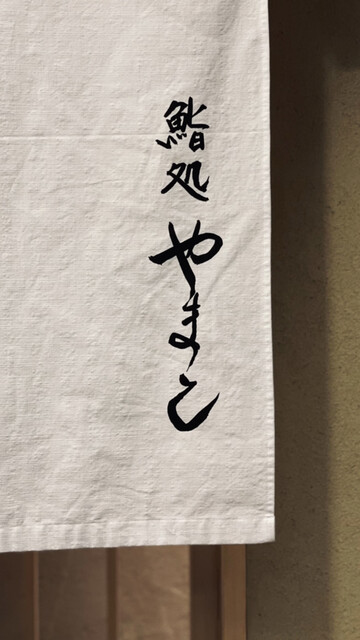 鮨処やまこ